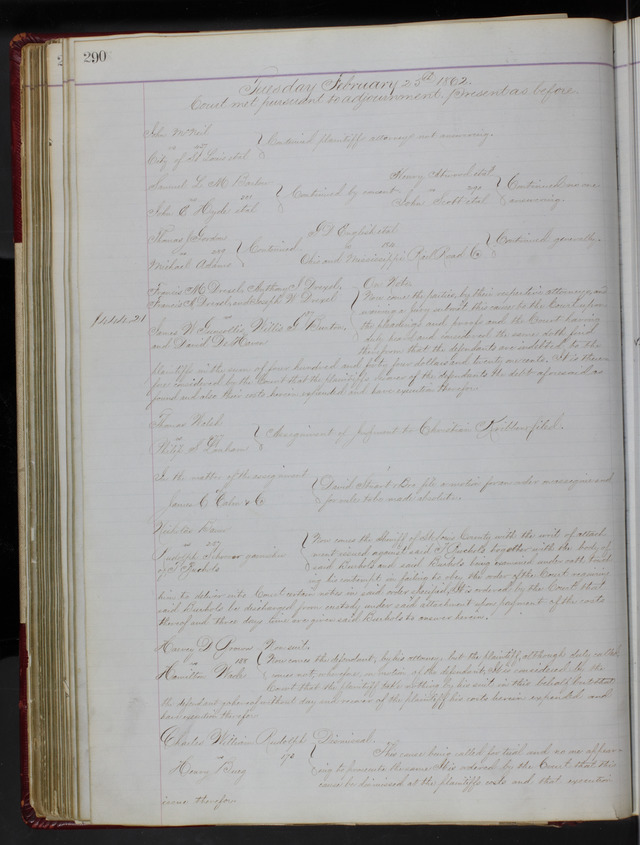 290
Tuesday February 25th 1862.
Court met pursuant to adjournment. present as before.
John McNeil
vs
City of St Louis etal
Continued plaintiffs attorney not answering.
Samuel L. M. Barlow
vs
John E Hyde etal
Continued by consent
Henry etal
vs
John Scott etal
Continued no one answering.
Thomas J Gordon
vs
Michael Adams
Continued
J D English etal
vs
Ohio and Mississippi Rail Road Co
Continued generally.
Francis M Drexel, Anthony J Drexel,
Francis A Drexel, and Joseph W Drexel
vs
James N , Willis G
and David DeHaven
On Note
Now come the parties, by their respective attorneys, and
waiving a jury submit this cause to the Court upon
the pleadings and proofs and the Court having
duly heard and considered the same doth find
therefrom that the defendants are indebted to the
plaintiffs in the sum of four hundred and forty four dollars and twenty cents. It is there-
fore considered by the Court that the plaintiffs recover of the defendants the debt aforesaid as
found and also their costs herein expended and have execution therefor.
Thomas Walsh
vs
Philip A
Assignment of judgment to Christian filed.
In the matter of the assignment
James C & Co
David Stuart files a motion for an order on assignee and
for rule to be made absolute.
Nicholas
vs 287
Rudolph garnishee
of T Buchols
Now comes the Sheriff of St Louis County with the writ of attach-
ment issued against said T Buchols together with the body of
said Buchols and said Buchols being examined under oath touch-
ing his contempt in failing to obey the order of the Court requiring
him to deliver into Court certain notes in said order specified, It is ordered by the Court that
said Buchols be discharged from custody under said attachment upon payment of the costs
thereof and three days time are given said Buchols to answer herein.
Harvey D
vs 188
Hamilton Wade
Nonsuit.
Now comes the defendant, by his attorney but the plaintiff, although duly called
comes not, wherefore on motion of the defendant, It is considered by the
Court that the plaintiff take nothing by his suit in this behalf but that
the defendant go hereof without day and recover of the plaintiff his costs herein expended and
have execution therefor.
Charles William Rudolph
vs
Henry Burg
Dismissal.
This cause being called for trial and no one appear-
ing to prosecute the same It is ordered by the Court that this
cause be dismissed at the plaintiffs costs and that execution
issue therefor.